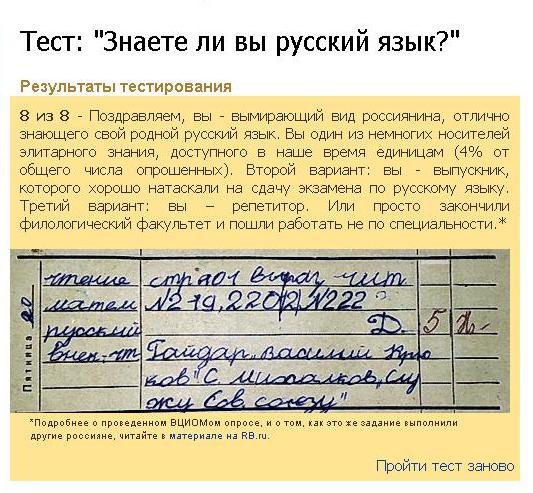 Тест: "Знаете ли вы русский язык?"
Результаты тестирования
8 из 8 - Поздравляем, вы - вымирающий вид россиянина, отлично
знающего свой родной русский язык. Вы один из немногих носителей
элитарного знания, доступного в наше время единицам (4% от
общего числа опрошенных). Второй вариант: вы - выпускник,
которого хорошо натаскали на сдачу экзамена по русскому языку.
Третий вариант: вы – репетитор. Или просто закончили
филологический факультет и пошли работать не по специальности.*
Пятница 20
чтение стр 201 выраз. чит
матем №219, 220(2), №222
русский Д. 5
внек. чт Гайдар „Василий Крю
ков" С. Михалков „Слу
жу Сов. союзу"
*Подробнее о проведенном ВЦИОМом опросе, и о том, как это же задание выполнили
другие россияне, читайте в материале на RB.ru.
Пройти тест заново